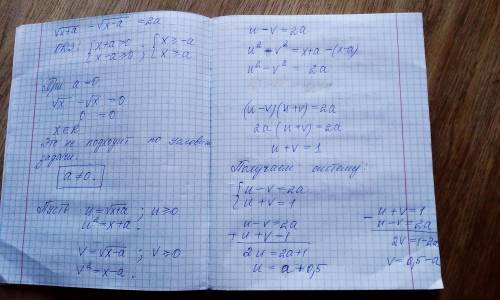 √x+a - √x-a = 2a
ОДЗ: { x+a ≥ 0 ; { x ≥ -a
{ x-a ≥ 0 ; { x ≥ a
При a = 0
√x - √x = 0
0 = 0
x ∈ R
Это не подходит по условию
задачи.
a ≠ 0.
Пусть u = √x+a ; u ≥ 0
u² = x+a.
v = √x-a ; v ≥ 0
v² = x-a.
u - v = 2a
u² - v² = x+a - (x-a)
u² - v² = 2a
(u-v)(u+v) = 2a
2a (u+v) = 2a
u + v = 1
Получаем систему:
{ u - v = 2a
{ u + v = 1
u - v = 2a
+ u + v = 1
2u = 2a+1
u = a + 0,5
- u + v = 1
u - v = 2a
2v = 1-2a
v = 0,5-a